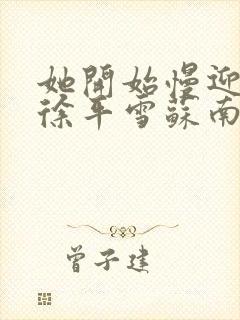 她開始慢迎
徐平雪蘇南
曾子建